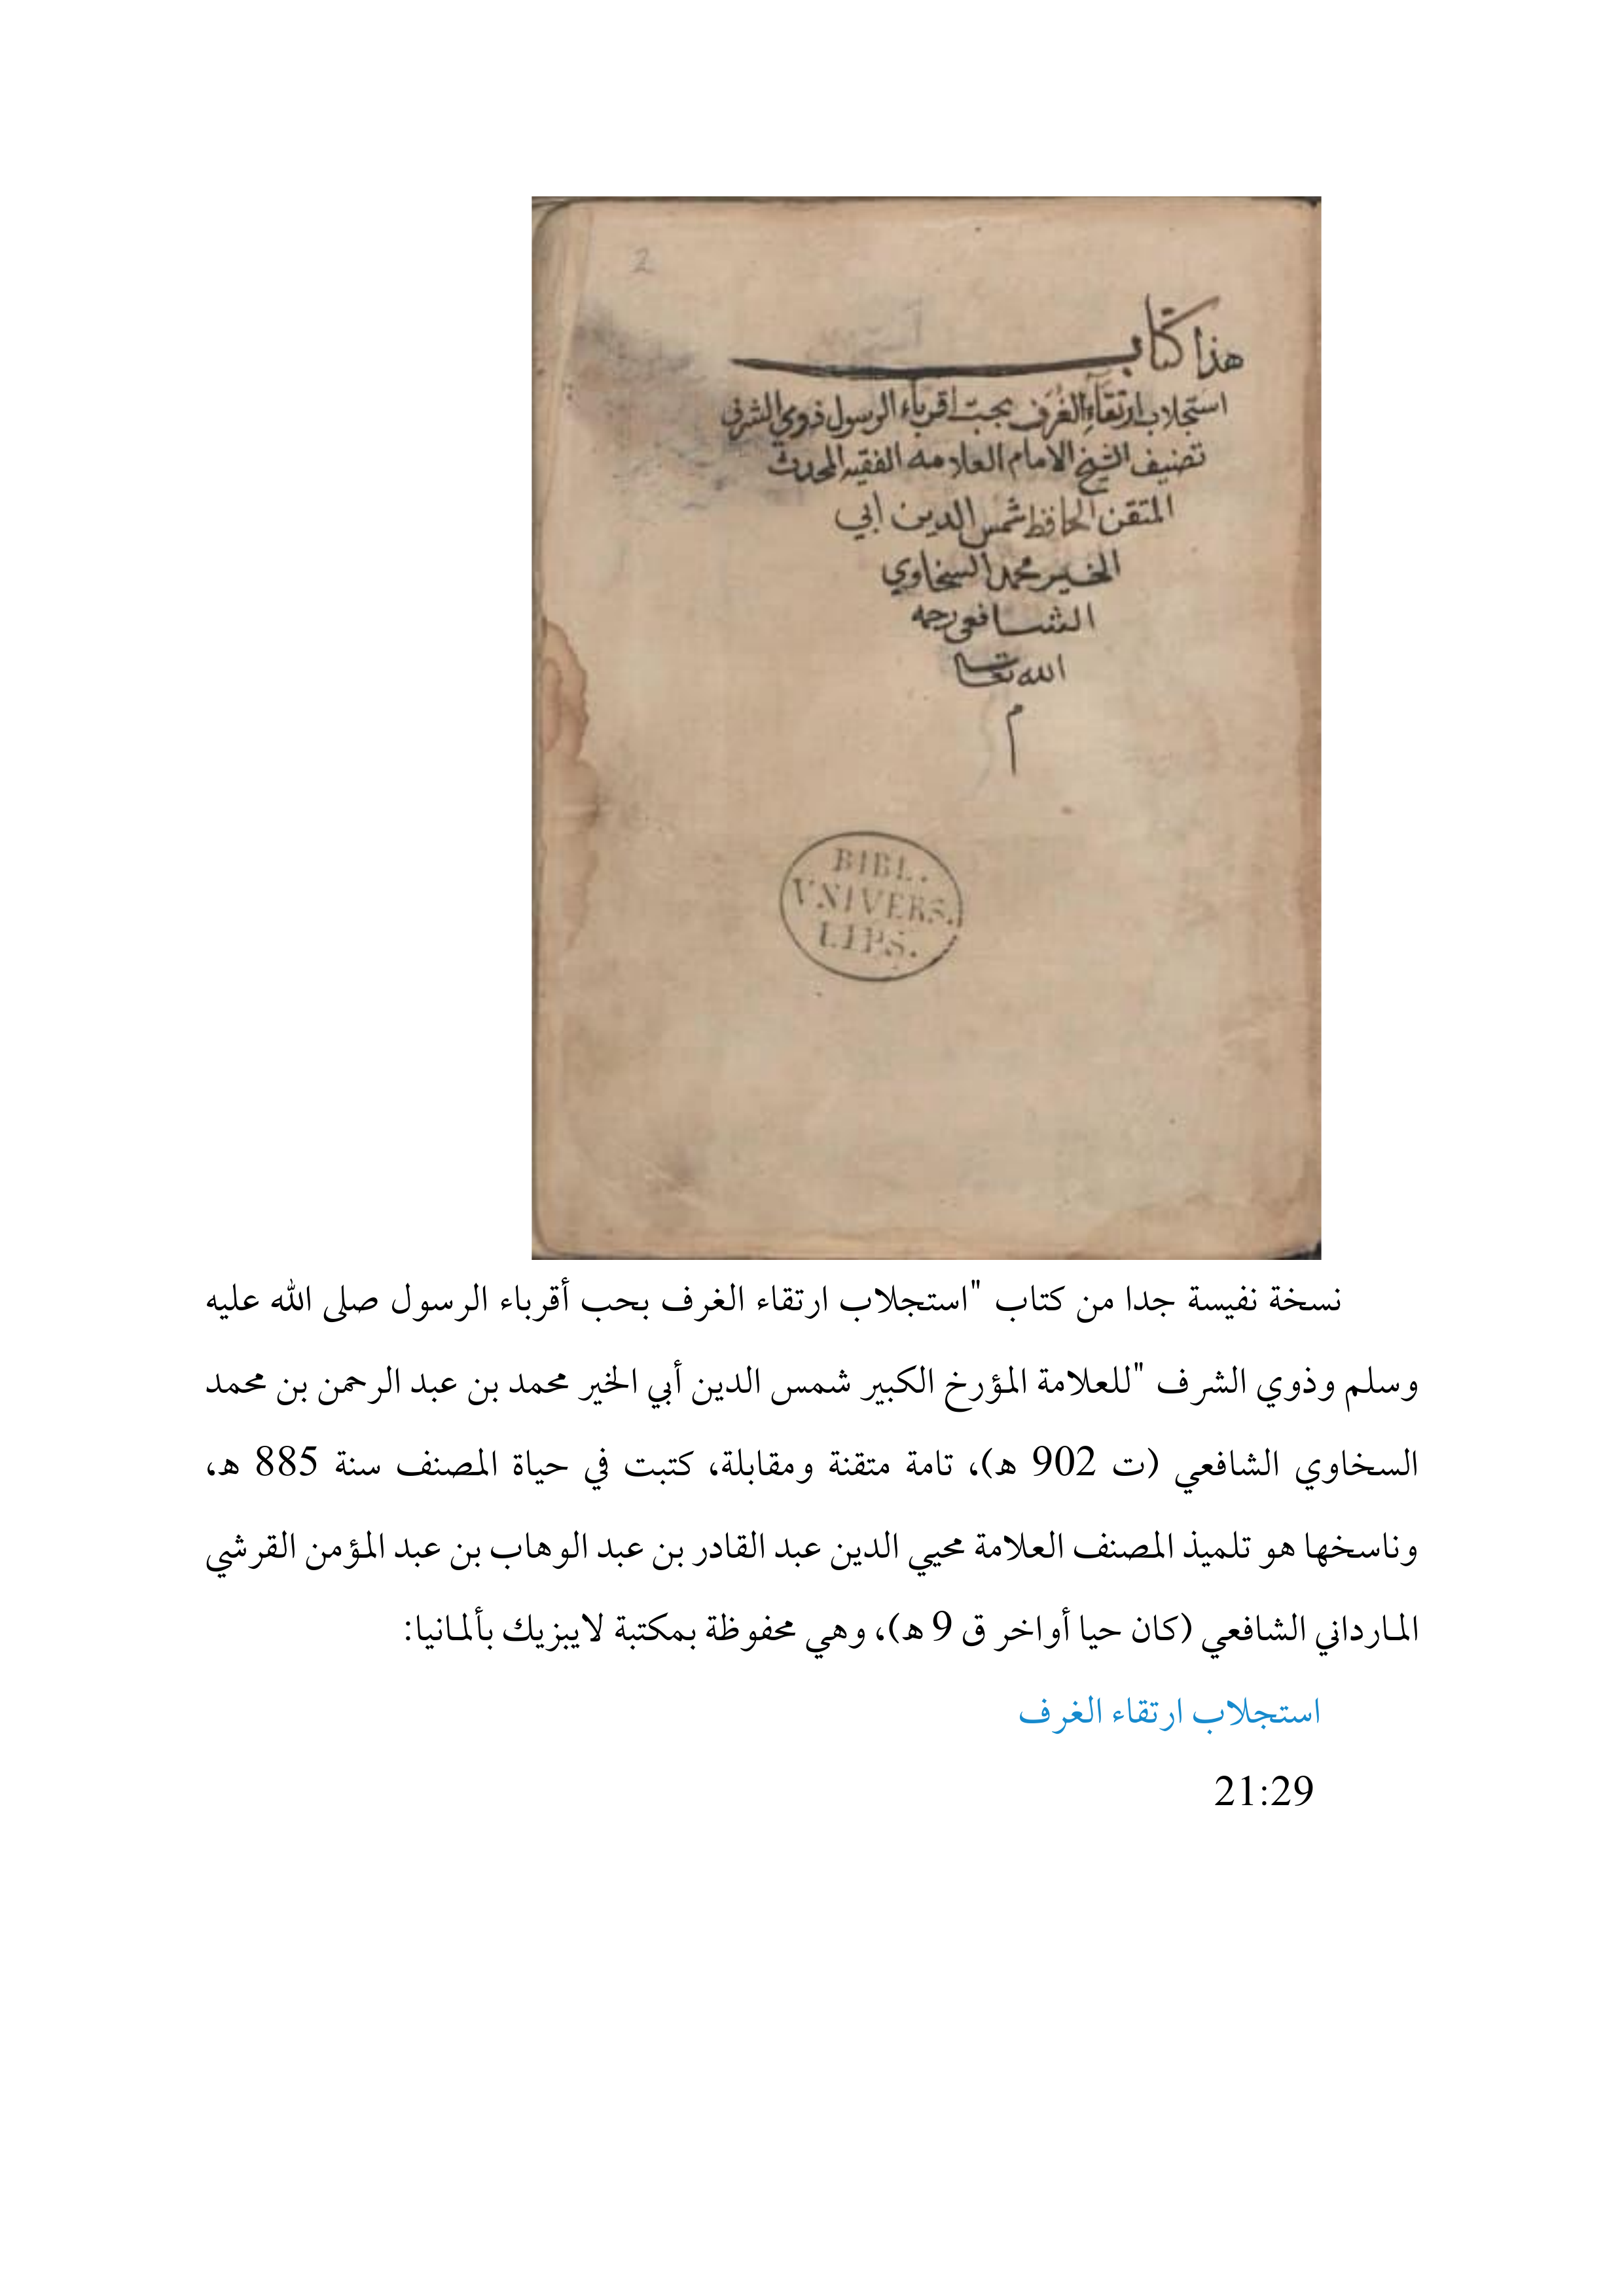 2
هذا كتاب
استجلاب ارتقاء الغُرَف بحبّ اقرباء الرسول ذوي الشرف
تصنيف الشيخ الامام العلامه الفقيه المحدث
المتقن الحافظ شمس الدين ابي
الخير محمد السخاوي
الشافعي رحمه
الله تعا
م
BIBL.
VNIVERS.
LIPS.
نسخة نفيسة جدا من كتاب "استجلاب ارتقاء الغرف بحب أقرباء الرسول صلى الله عليه
وسلم وذوي الشرف "للعلامة المؤرخ الكبير شمس الدين أبي الخير محمد بن عبد الرحمن بن محمد
السخاوي الشافعي (ت 902 هـ)، تامة متقنة ومقابلة، كتبت في حياة المصنف سنة 885 هـ،
وناسخها هو تلميذ المصنف العلامة محيي الدين عبد القادر بن عبد الوهاب بن عبد المؤمن القرشي
المارداني الشافعي (كان حيا أواخر ق 9 هـ)، وهي محفوظة بمكتبة لايبزيك بألمانيا:
استجلاب ارتقاء الغرف
21:29